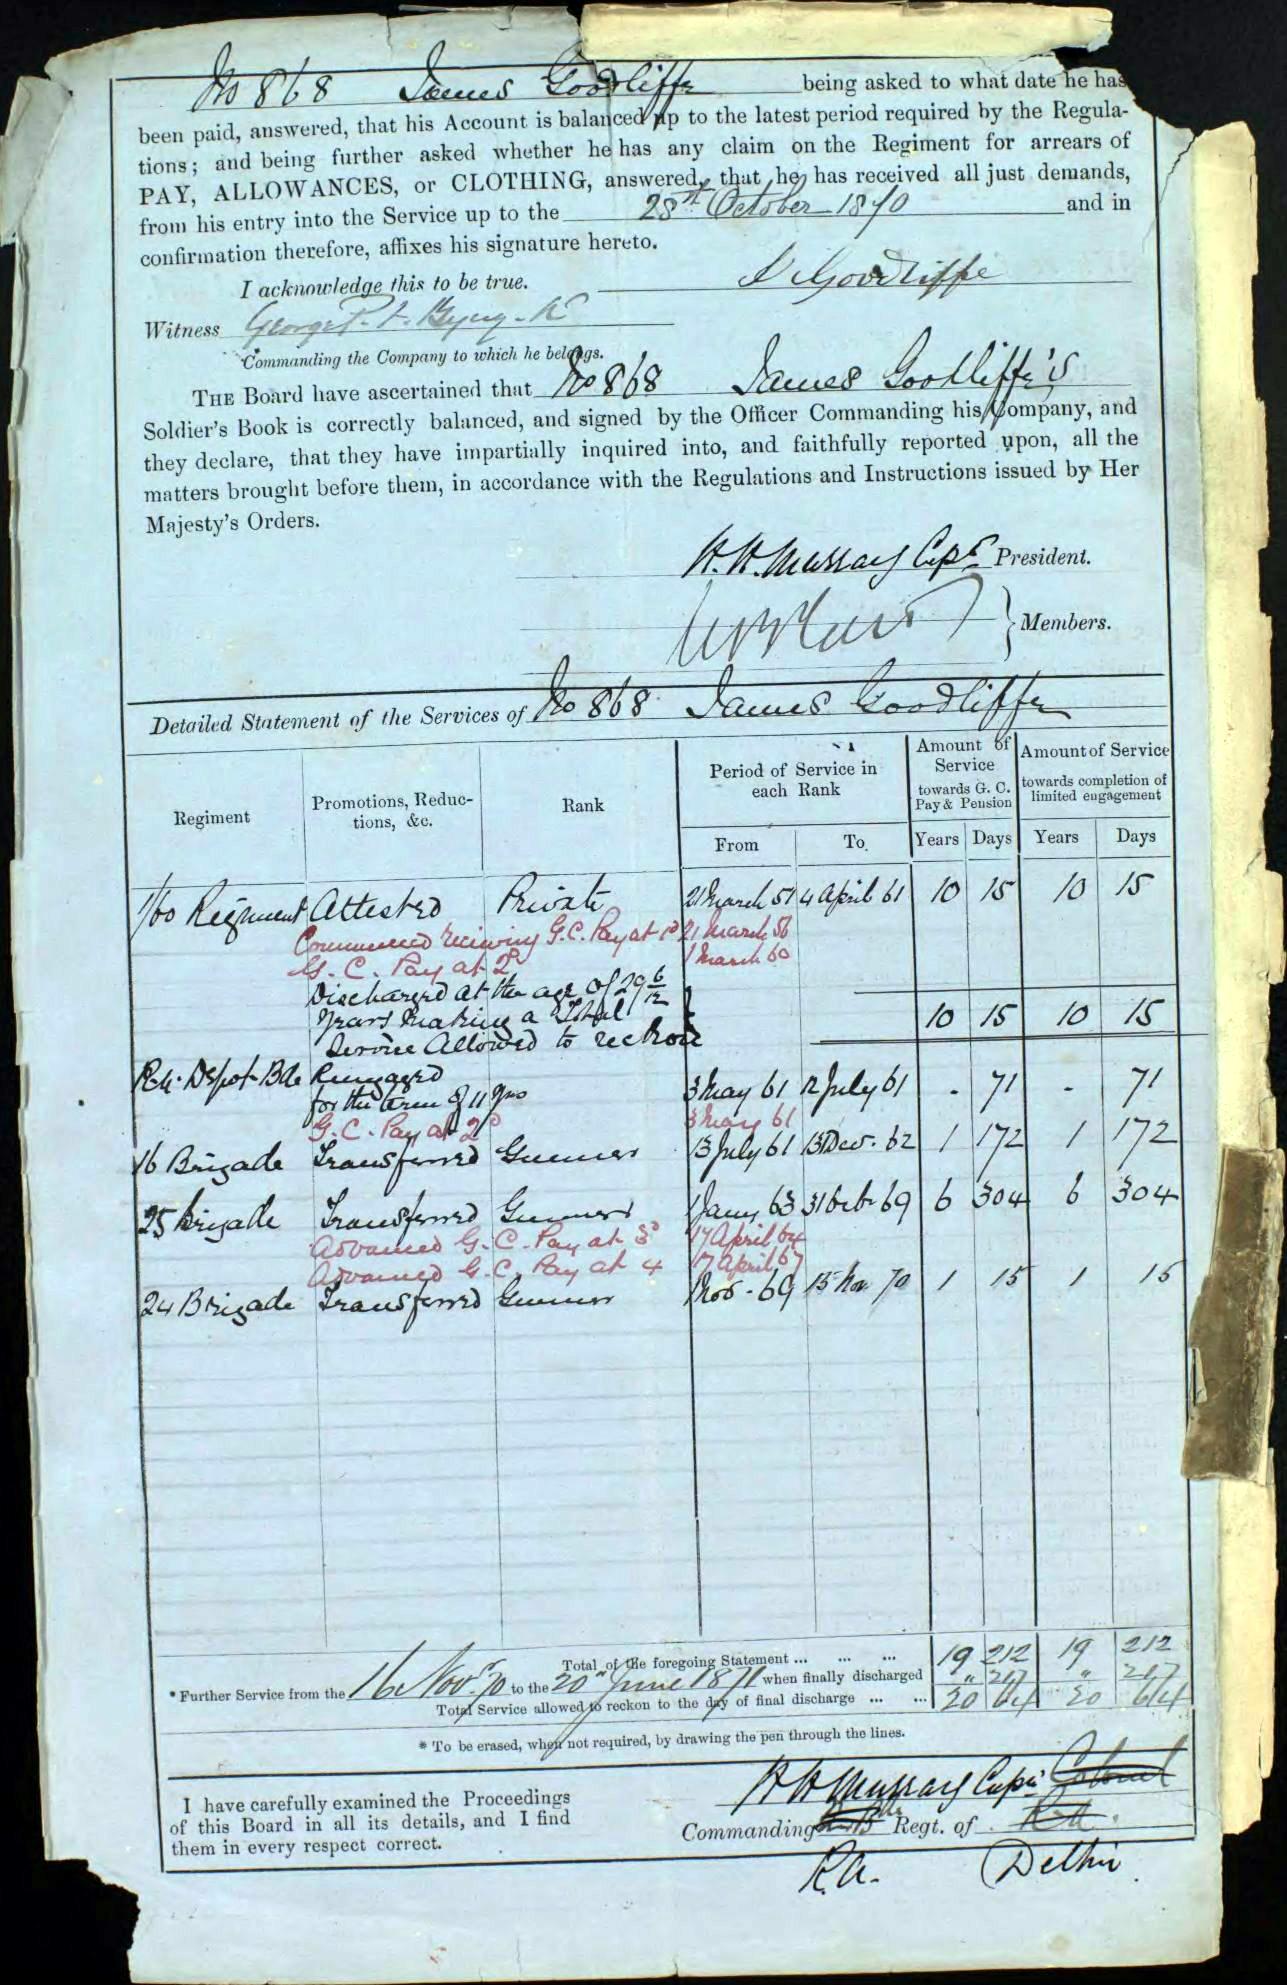 No 868 James Goodliffe being asked to what date he has
been paid, answered, that his Account is balanced up to the latest period required by the Regula-
tions; and being further asked whether he has any claim on the Regiment for arrears of
PAY, ALLOWANCES, or CLOTHING, answered, that he has received all just demands,
from his entry into the Service up to the 28th October 1870 and in
confirmation therefore, affixes his signature hereto.
I acknowledge this to be true. J Goodliffe
Witness George
Commanding the Company to which he belongs.
THE Board have ascertained that No 868 James Goodliffe's
Soldier's Book is correctly balanced, and signed by the Officer Commanding his Company, and
they declare, that they have impartially inquired into, and faithfully reported upon, all the
matters brought before them, in accordance with the Regulations and Instructions issued by Her
Majesty's Orders.
H. H. Murray Capt President.
Members.
Detailed Statement of the Services of No 868 James Goodliffe
Regiment Promotions, Reduc-tions, &c. Rank Period of Service in each Rank Amount of Service towards G. C. Pay & Pension Amount of Service towards completion of limited engagement
From To Years Days Years Days
1/60 Regiment Attested Private 21 March 51 4 April 61 10 15 10 15
Commenced receiving G.C. Pay at 1d 21 March 56
G. C. Pay at 2d 1 March 60
Discharged at the age of 29 6/12
years making a Total
Service Allowed to reckon 10 15 10 15
Depot Bde Reengaged
for the term of 11 yrs 3 May 61 12 July 61 - 71 - 71
G. C. Pay at 2d 3 May 61
16 Brigade Transferred Gunner 13 July 61 31 Dec. 62 1 172 1 172
25 Brigade Transferred Gunner 1 Jany 63 31 Oct. 69 6 304 6 304
Advanced G. C. Pay at 3d 17 April 64
Advanced G. C. Pay at 4 17 April 67
24 Brigade Transferred Gunner 1 Nov. 69 15 Nov 70 1 15 1 15
Total of the foregoing Statement ... ... ... 19 212 19 212
* Further Service from the 16 Novr 70 to the 20th June 1871 when finally discharged " 217 " 217
Total Service allowed to reckon to the day of final discharge ... ... 20 64 20 64
* To be erased, when not required, by drawing the pen through the lines.
H H Murray Capt Colonel
I have carefully examined the Proceedings
of this Board in all its details, and I find
them in every respect correct.
Commanding Regt. of
R.A. Delhi